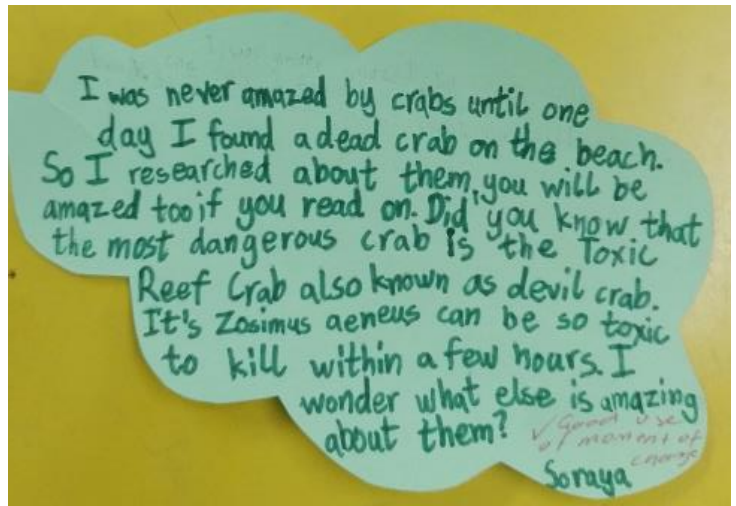 I was never amazed by crabs until one
day I found a dead crab on the beach.
So I researched about them, you will be
amazed too if you read on. Did you know that
the most dangerous crab is the Toxic
Reef Crab also known as devil crab.
It's Zosimus aeneus can be so toxic
to kill within a few hours. I
wonder what else is amazing
about them?
✓ Good use
of moment of
change
Soraya